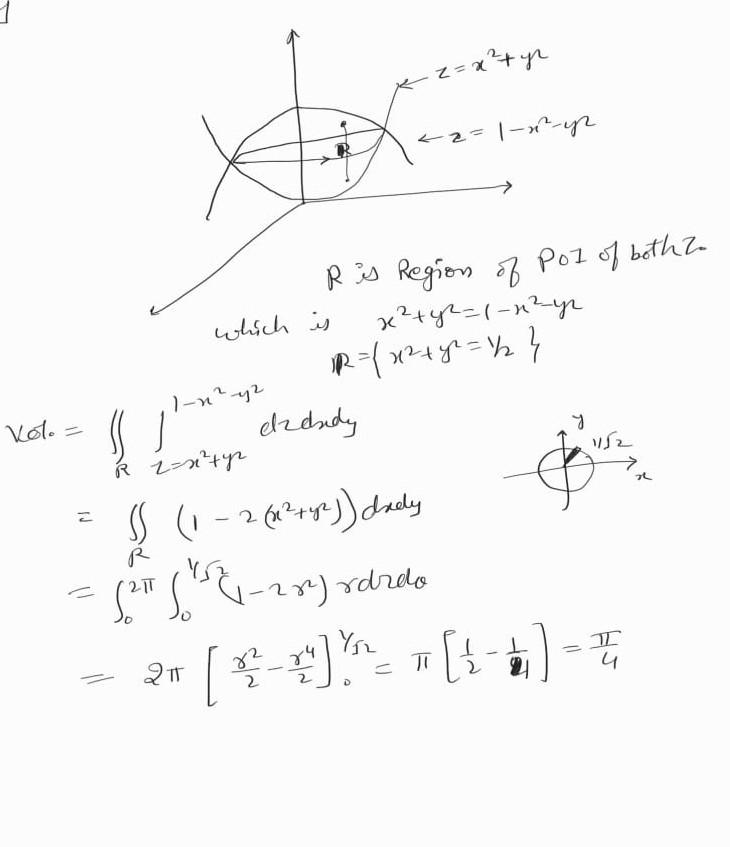 1
z = x²+y²
z = 1-x²-y²
R
R is Region of POI of both z.
which is x²+y²=1-x²-y²
R={x²+y²=1/2}
Vol. = ∬_R ∫_{z=x²+y²}^{1-x²-y²} dzdxdy
y
1/√2
x
= ∬_R (1-2(x²+y²))dxdy
= ∫_0^{2π} ∫_0^{1/√2} (1-2r²) rdrdθ
= 2π [r²/2 - r⁴/2]_0^{1/√2} = π[1/2 - 1/4] = π/4